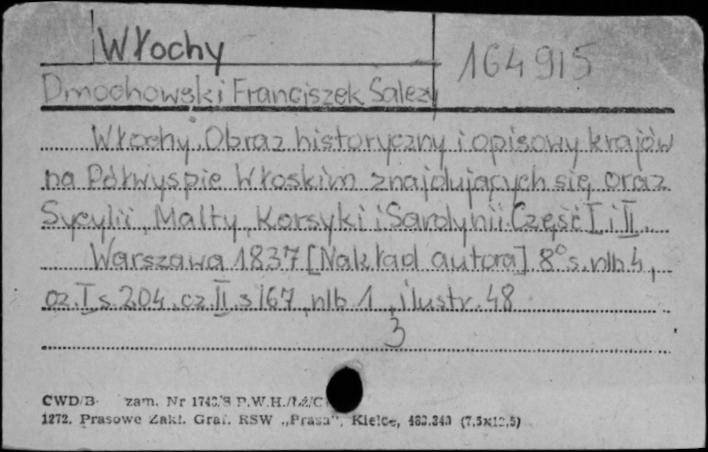 Włochy
164915
Dmochowski Franciszek Salezy
Włochy. Obraz historyczny i opisowy krajów
na Półwyspie Włoskim znajdujących się oraz
Sycylii, Malty, Korsyki i Sardynii. Część I i II.
Warszawa 1837 [Nakład autora] 8° s. nlb 4,
cz. I s. 204, cz. II s 167, nlb 1, ilustr. 48
3
CWD/B zam. Nr
1272. Prasowe Zakł. Graf. RSW „Prasa", Kielce,